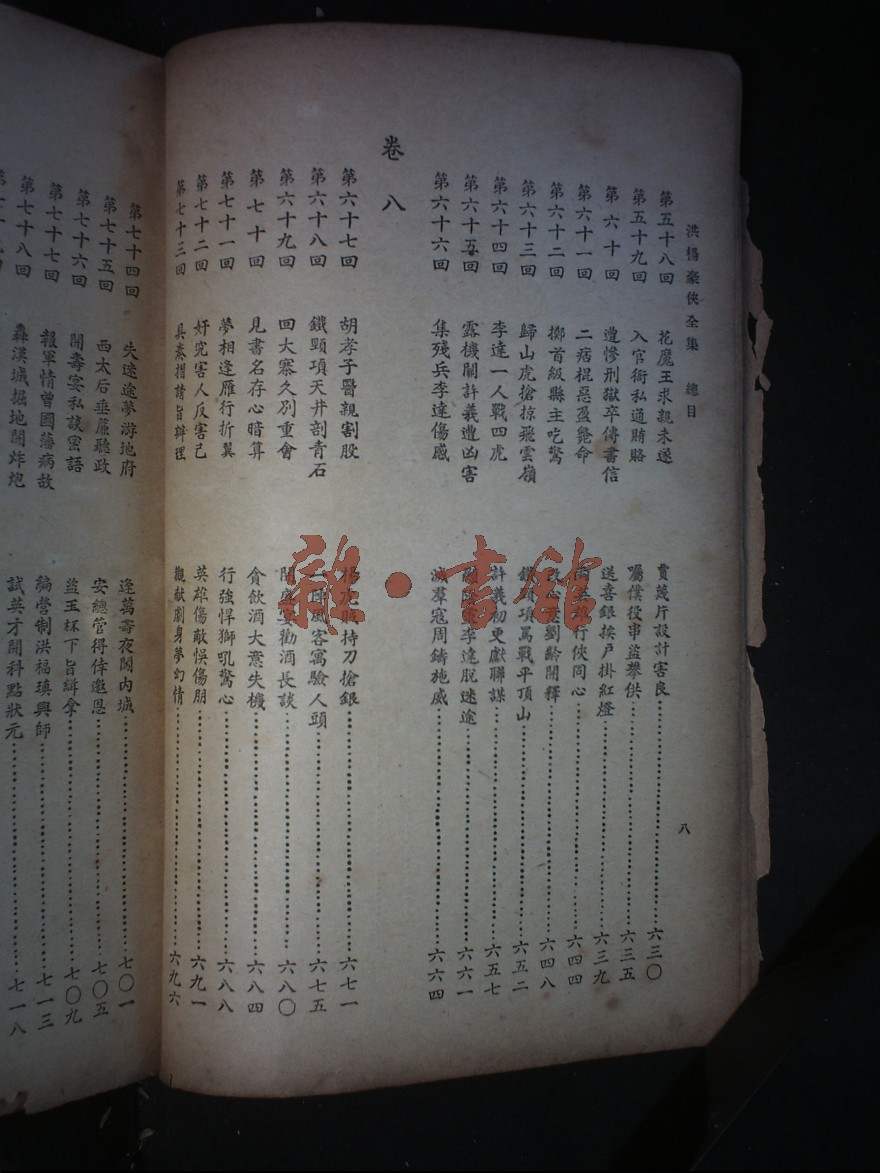 洪楊豪俠全集 總目
八
第五十八回 花魔王求親未遂 賈蔑片設計害良 六三〇
第五十九回 入官衙私通賄賂 囑僕役串盜攀供 六三五
第六十回 遭慘刑獄卒傳書信 送喜銀挨戶掛紅燈 六三九
第六十一回 二痞棍惡盈斃命 英雄行俠同心 六四四
第六十二回 擲首級縣主吃驚 心意劉齡開釋 六四八
第六十三回 歸山虎搶掠飛雲嶺 鐵頸項罵戰平頂山 六五二
第六十四回 李達一人戰四虎 許義初更獻聯謀 六五七
第六十五回 露機關許義遭凶害 李達脫迷途 六六一
第六十六回 集殘兵李達傷感 滅羣寇周鑄施威 六六四
卷八
第六十七回 胡孝子醫親割股 楊虎賊持刀搶銀 六七一
第六十八回 鐵頸項天井剖青石 風客寓驗人頭 六七五
第六十九回 回大寨久別重會 開慶宴勸酒長談 六八〇
第七十回 見書名存心暗算 貪飲酒大意失機 六八四
第七十一回 夢相逢雁行折翼 行強悍獅吼驚心 六八八
第七十二回 奸宄害人反害己 英雄傷敵悞傷朋 六九一
第七十三回 具奏摺請旨辦理 觀獻劇身夢幻情 六九六
第七十四回 失迷途夢游地府 逢萬壽夜鬧內城 七〇一
第七十五回 西太后垂簾聽政 安總管得倖邀恩 七〇五
第七十六回 開壽宴私談密語 盜玉杯下旨緝拿 七〇九
第七十七回 報軍情曾國藩病故 編營制洪福瑱興師 七一三
第七十八回 轟漢城掘地開炸炮 試英才開科點狀元 七一八
雜·書館